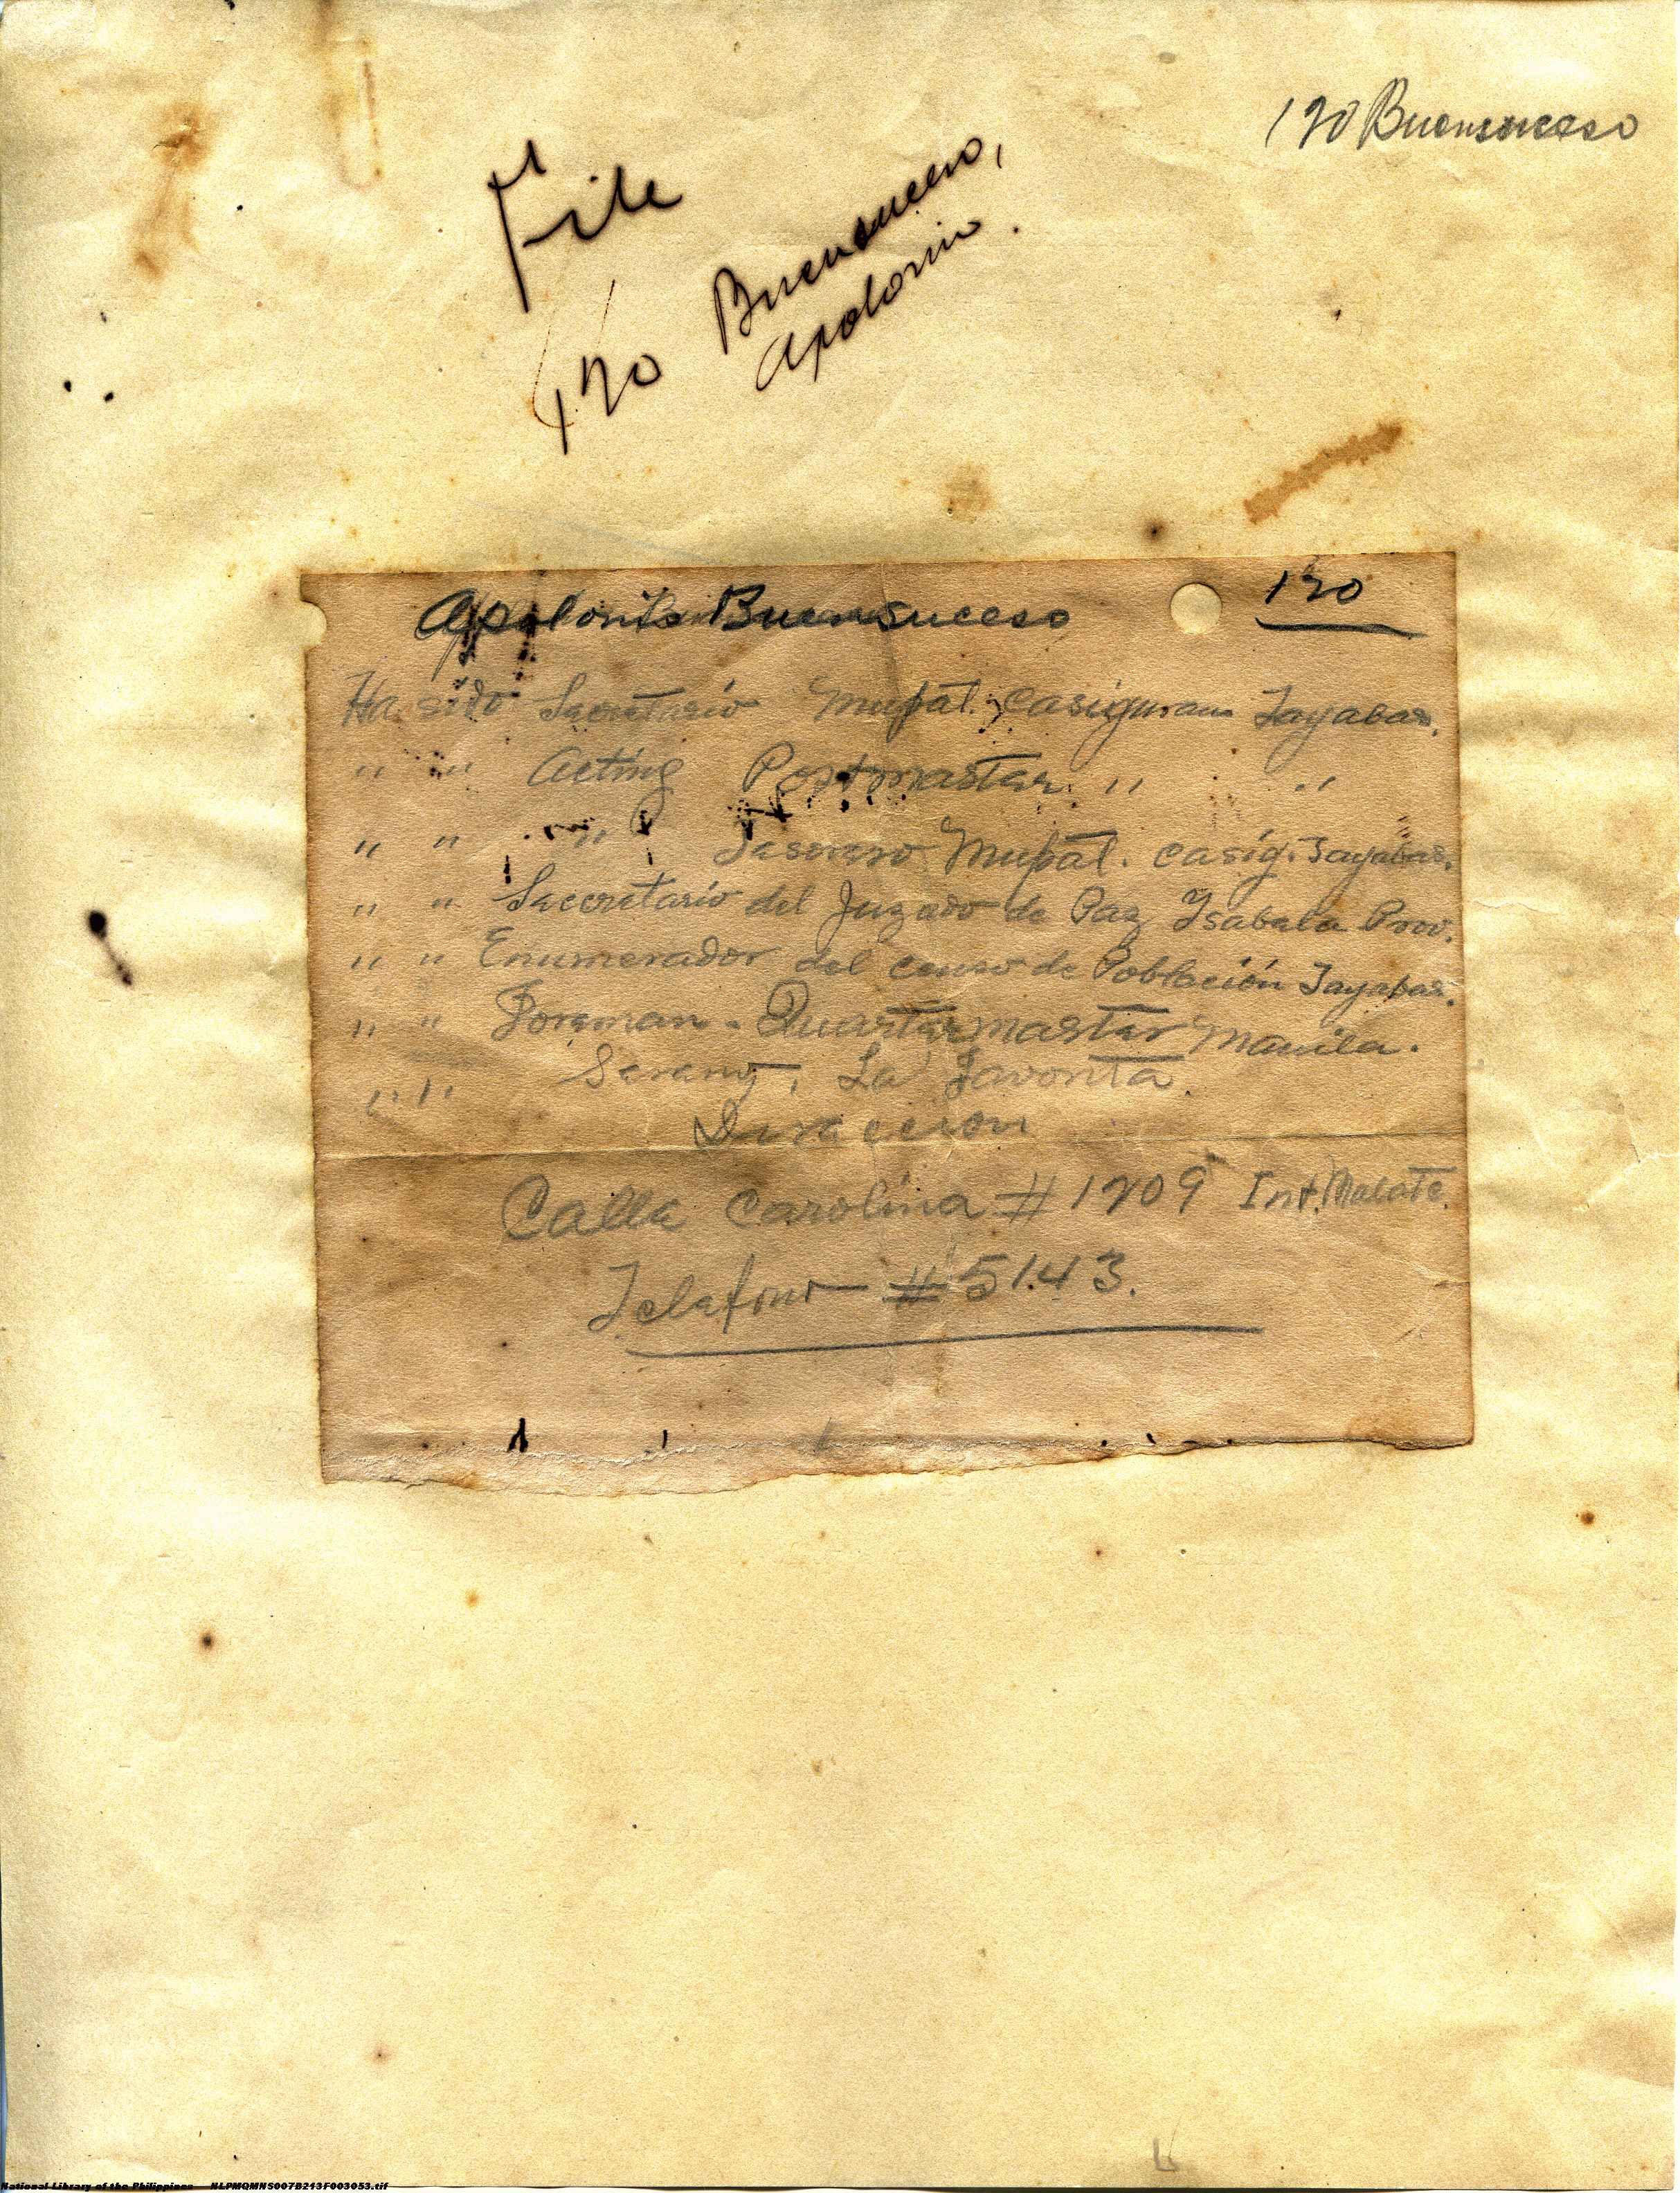 120 Buensuceso
File
120 Buensuceso,
Apolonio.
Apolonio Buensuceso 120
Ha sido Secretario Mupal. Casiguran Tayabas.
" " Acting Postmaster. " "
" " " Tesorero Mupal. Casig. Tayabas.
" " Secretario del Juzgado de Paz Isabela Prov.
" " Enumerador del censo de Población Tayabas.
" " Foreman - Quartermaster Manila.
" " La Favorita.
Direccion
Calle Carolina # 1209 Int. Malate.
Telefono # 5143.
National Library of the Philippines NLPMQMNS007B213F003053.tif